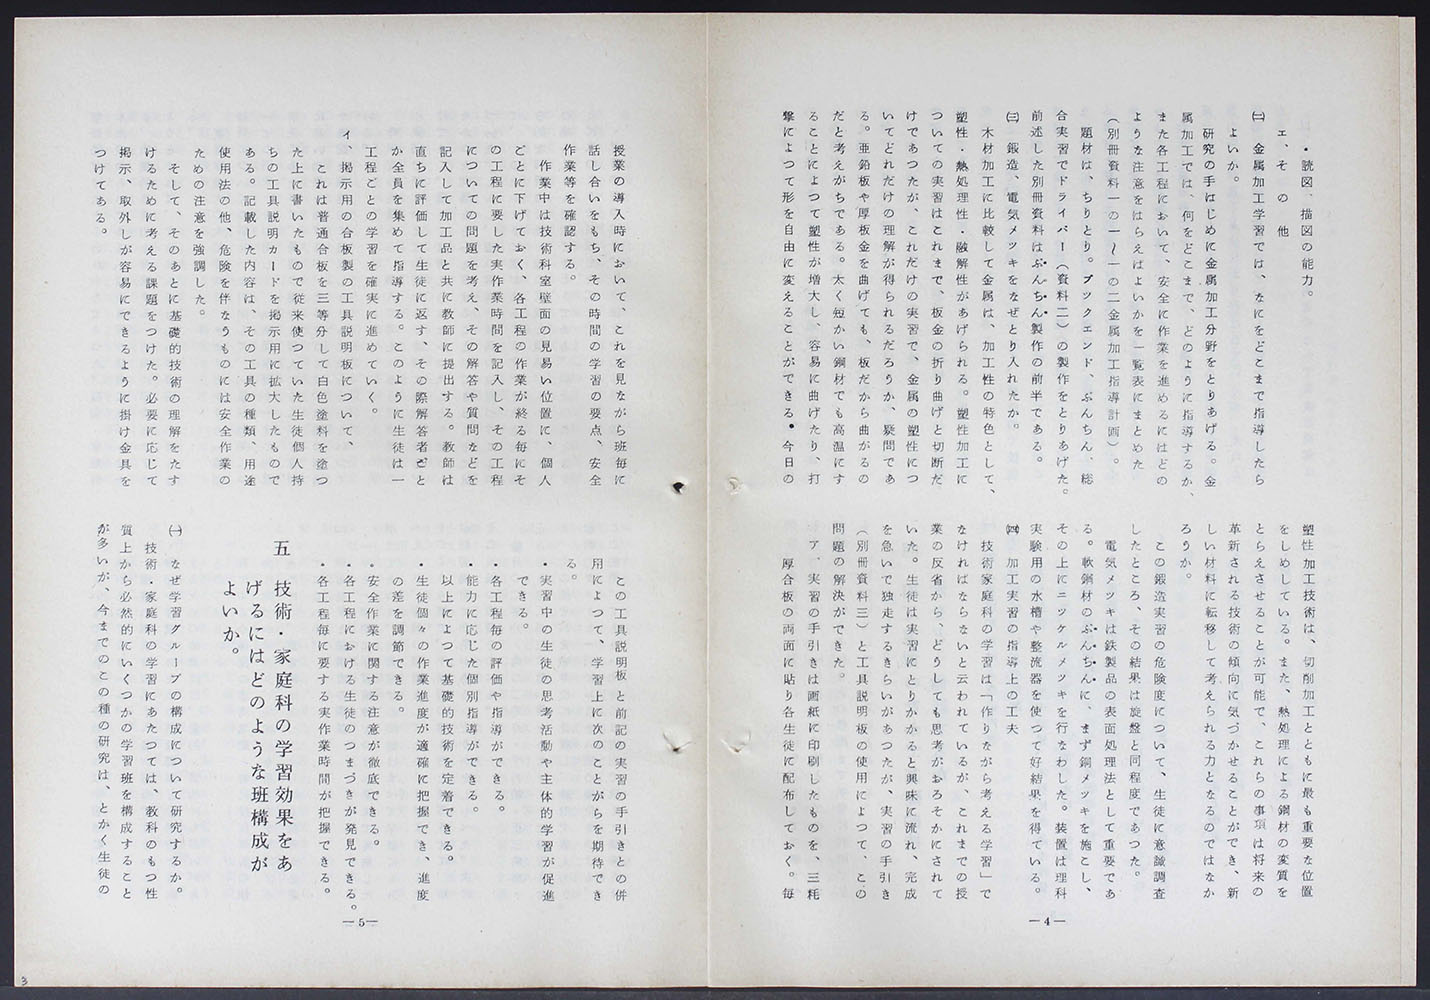 ・読図、描図の能力。
エ、そ の 他
㈡ 金属加工学習では、なにをどこまで指導したら
よいか。
研究の手はじめに金属加工分野をとりあげる。金
属加工では、何をどこまで、どのように指導するか、
また各工程において、安全に作業を進めるにはどの
ような注意をはらえばよいかを一覧表にまとめた
(別冊資料一の一〜一の二金属加工指導計画)。
題材は、ちりとり。ブックエンド、ぶんちん、総
合実習でドライバー(資料二)の製作をとりあげた。
前述した別冊資料はぶんちん製作の前半である。
㈢ 鍛造、電気メツキをなぜとり入れたか。
木材加工に比較して金属は、加工性の特色として、
塑性・熱処理性・融解性があげられる。塑性加工に
ついての実習はこれまで、板金の折り曲げと切断だ
けであつたが、これだけの実習で、金属の塑性につ
いてどれだけの理解が得られるだろうか、疑問であ
る。亜鉛板や厚板金を曲げても、板だから曲がるの
だと考えがちである。太く短かい鋼材でも高温にす
ることによつて塑性が増大し、容易に曲げたり、打
撃によつて形を自由に変えることができる・今日の
塑性加工技術は、切削加工とともに最も重要な位置
をしめしている。また、熱処理による鋼材の変質を
とらえさせることが可能で、これらの事項は将来の
革新される技術の傾向に気づかせることができ、新
しい材料に転移して考えられる力となるのではなか
ろうか。
この鍛造実習の危険度について、生徒に意識調査
したところ、その結果は旋盤と同程度であつた。
電気メツキは鉄製品の表面処理法として重要であ
る。軟鋼材のぶんちんに、まず銅メツキを施こし、
その上にニツケルメツキを行なわした。装置は理科
実験用の水槽や整流器を使つて好結果を得ている。
㈣ 加工実習の指導上の工夫
技術家庭科の学習は「作りながら考える学習」で
なければならないと云われているが、これまでの授
業の反省から、どうしても思考がおろそかにされて
いた。生徒は実習にとりかかると興味に流れ、完成
を急いで独走するきらいがあつたが、実習の手引き
(別冊資料三)と工具説明板の使用によつて、この
問題の解決ができた。
ア、実習の手引きは画紙に印刷したものを、三粍
厚合板の両面に貼り各生徒に配布しておく。毎
—4—
授業の導入時において、これを見ながら班毎に
話し合いをもち、その時間の学習の要点、安全
作業等を確認する。
作業中は技術科室壁面の見易い位置に、個人
ごとに下げておく、各工程の作業が終る毎にそ
の工程に要した実作業時間を記入し、その工程
についての問題を考え、その解答や質問などを
記入して加工品と共に教師に提出する。教師は
直ちに評価して生徒に返す、その際解答者ごと
か全員を集めて指導する。このように生徒は一
工程ごとの学習を確実に進めていく。
イ、掲示用の合板製の工具説明板について、
これは普通合板を三等分して白色塗料を塗つ
た上に書いたもので従来使つていた生徒個人持
ちの工具説明カードを掲示用に拡大したもので
ある。記載した内容は、その工具の種類、用途
使用法の他、危険を伴なうものには安全作業の
ための注意を強調した。
そして、そのあとに基礎的技術の理解をたす
けるために考える課題をつけた。必要に応じて
掲示、取外しが容易にできるように掛け金具を
つけてある。
この工具説明板と前記の実習の手引きとの併
用によつて、学習上に次のことがらを期待でき
る。
・実習中の生徒の思考活動や主体的学習が促進
できる。
・各工程毎の評価や指導ができる。
・能力に応じた個別指導ができる。
以上によつて基礎的技術を定着できる。
・生徒個々の作業進度が適確に把握でき、進度
の差を調節できる。
・安全作業に関する注意が徹底できる。
・各工程における生徒のつまづきが発見できる。
・各工程毎に要する実作業時間が把握できる。
五 技術・家庭科の学習効果をあ
げるにはどのような班構成が
よいか。
㈠ なぜ学習グループの構成について研究するか。
技術・家庭科の学習にあたつては、教科のもつ性
質上から必然的にいくつかの学習班を構成すること
が多いが、今までのこの種の研究は、とかく生徒の
—5—
3